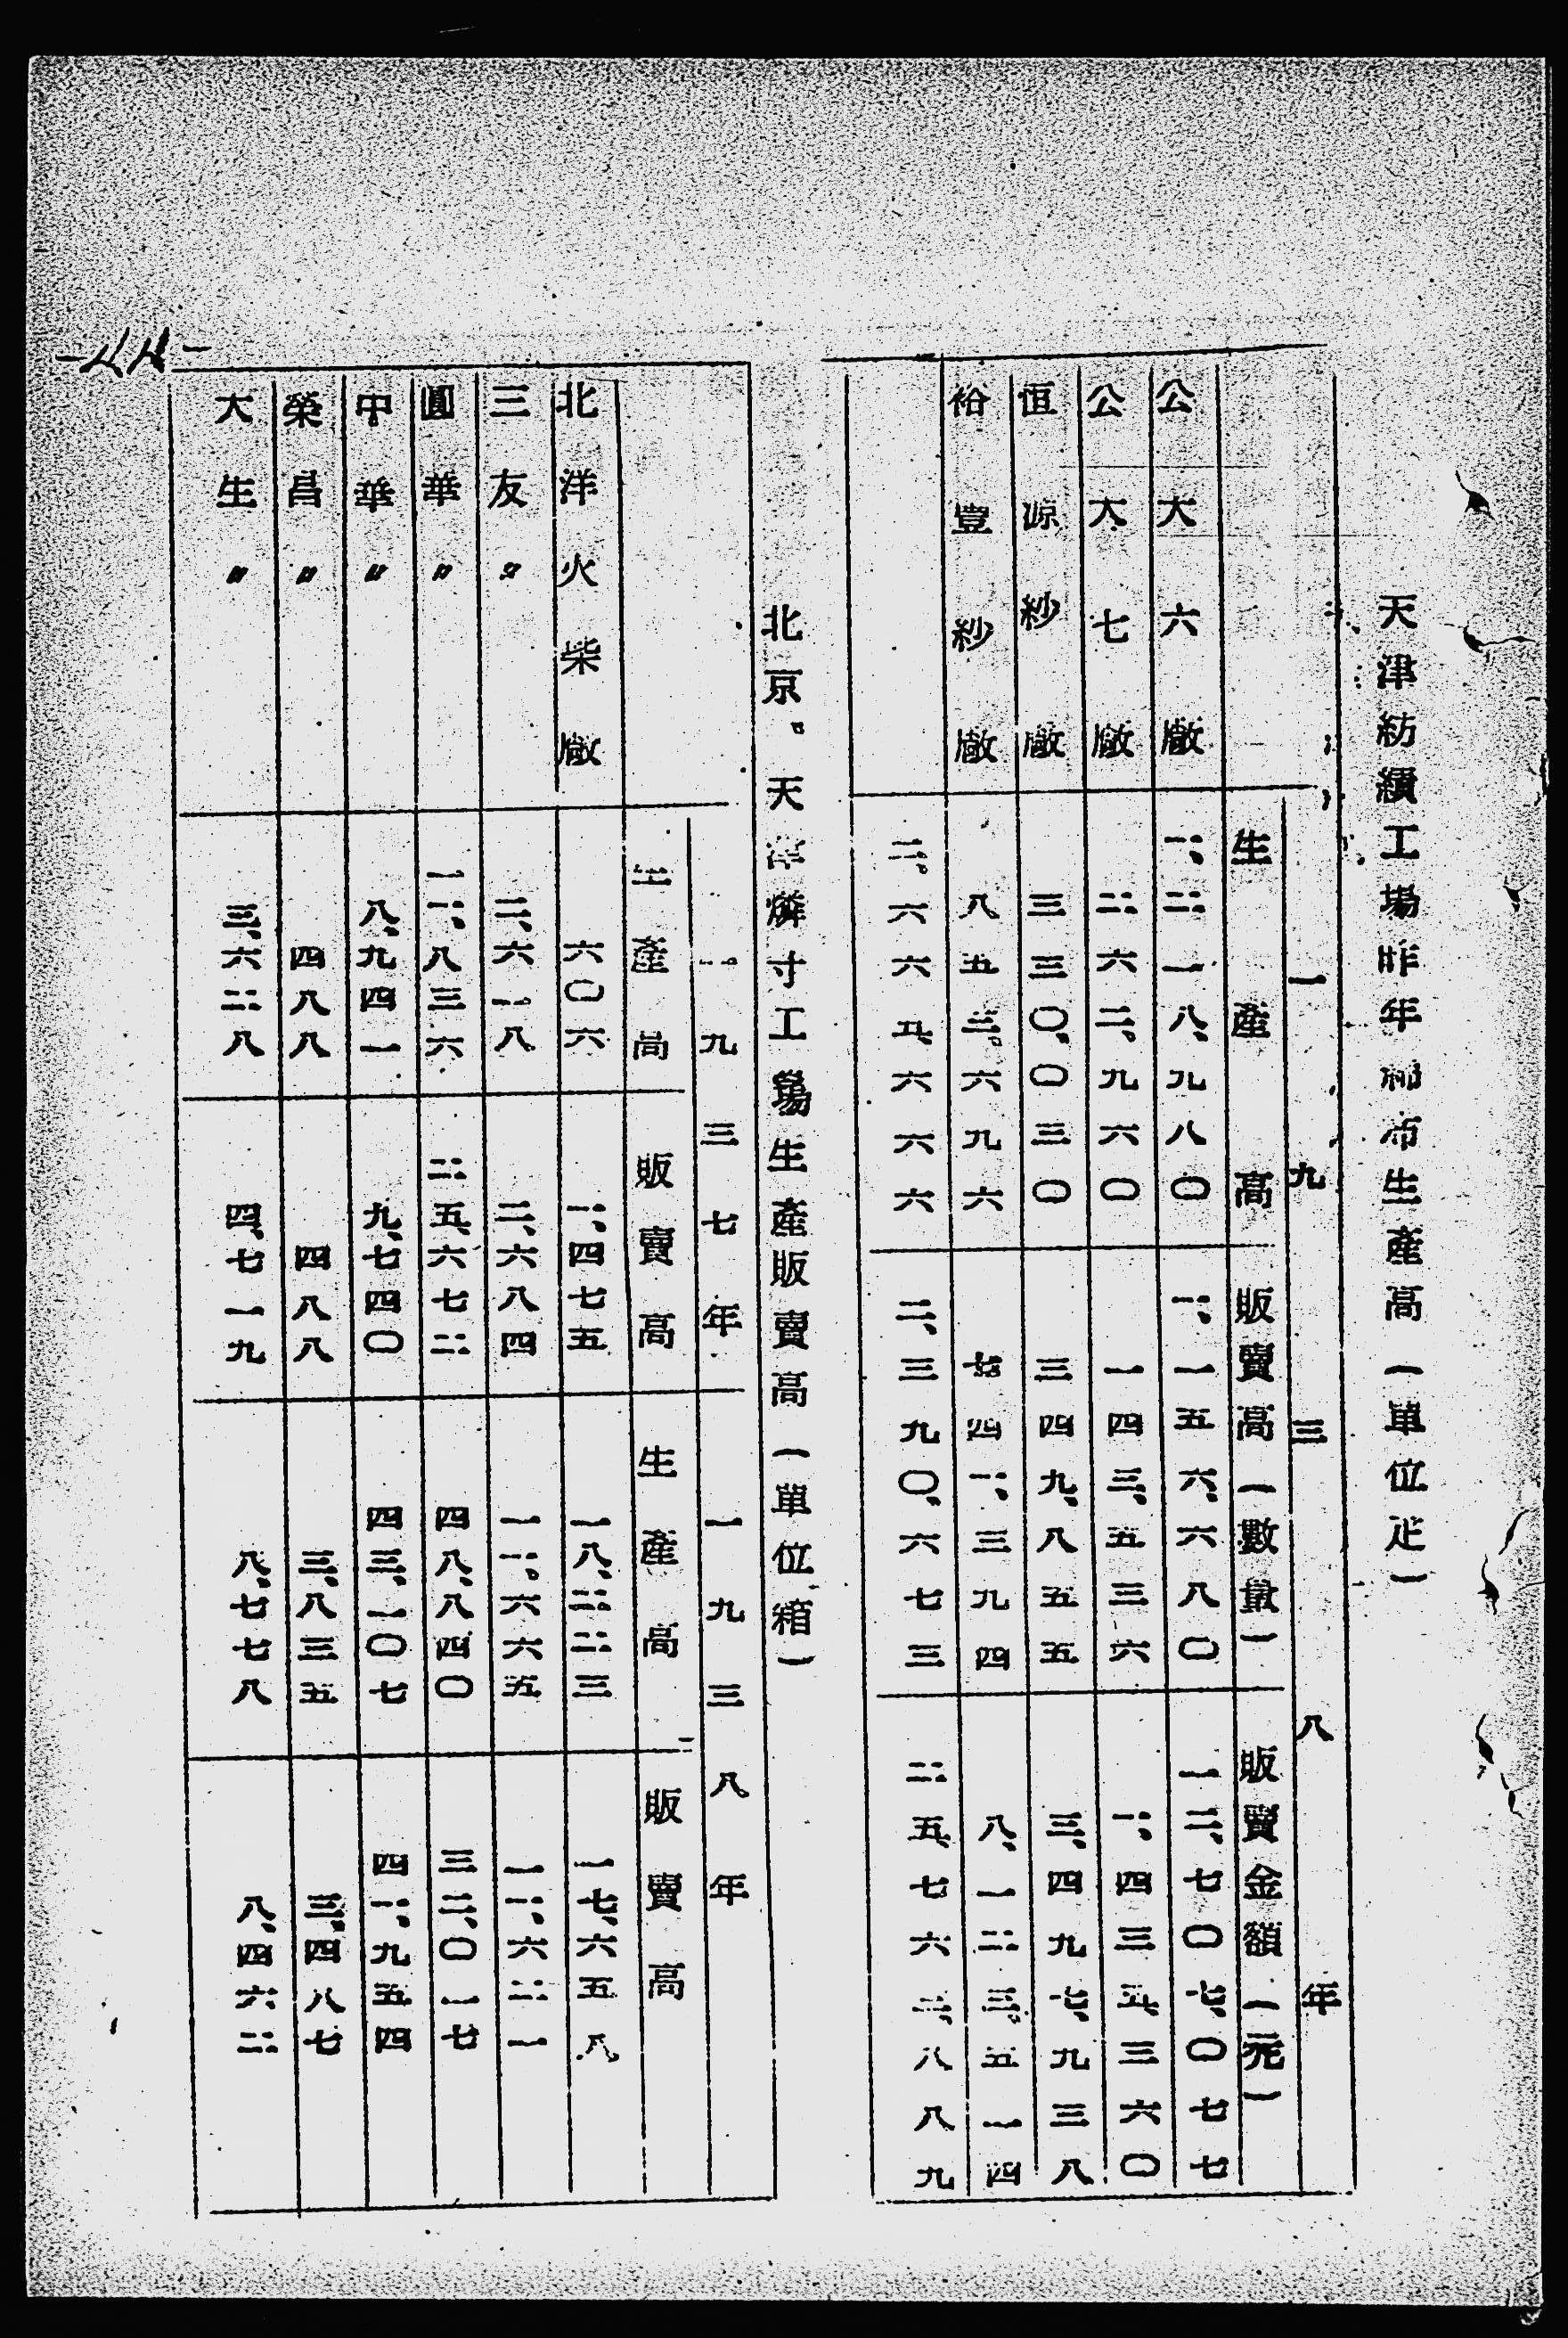 天津紡績工場昨年綿布生產高(單位疋)
一九三八年
生產高 販賣高(數量) 販賣金額(元)
公大六廠 一、二一八、九八〇 一、一五六、六八〇 一二、七〇七、〇七七
公大七廠 二六二、九六〇 一四三、五三六 一、四三五、三六〇
恒源紗廠 三三〇、〇三〇 三四九、八五五 三、四九七、九三八
裕豐紗廠 八五三、六九六 七四一、三九四 八、一二三、五一四
二、六六五、六六六 二、三九〇、六七三 二五、七六三、八八九
北京、天津燐寸工場生產販賣高(單位箱)
一九三七年 一九三八年
生產高 販賣高 生產高 販賣高
北洋火柴廠 六〇六 一、四七五 一八、二二三 一七、六五八
三友〃 二、六一八 二、六八四 一一、六六五 一一、六二一
圓華〃 一一、八三六 二五、六七二 四八、八四〇 三二、〇一七
中華〃 八、九四一 九、七四〇 四三、一〇七 四一、九五四
榮昌〃 四八八 四八八 三、八三五 三、四八七
大生〃 三、六二八 四、七一九 八、七七八 八、四六二